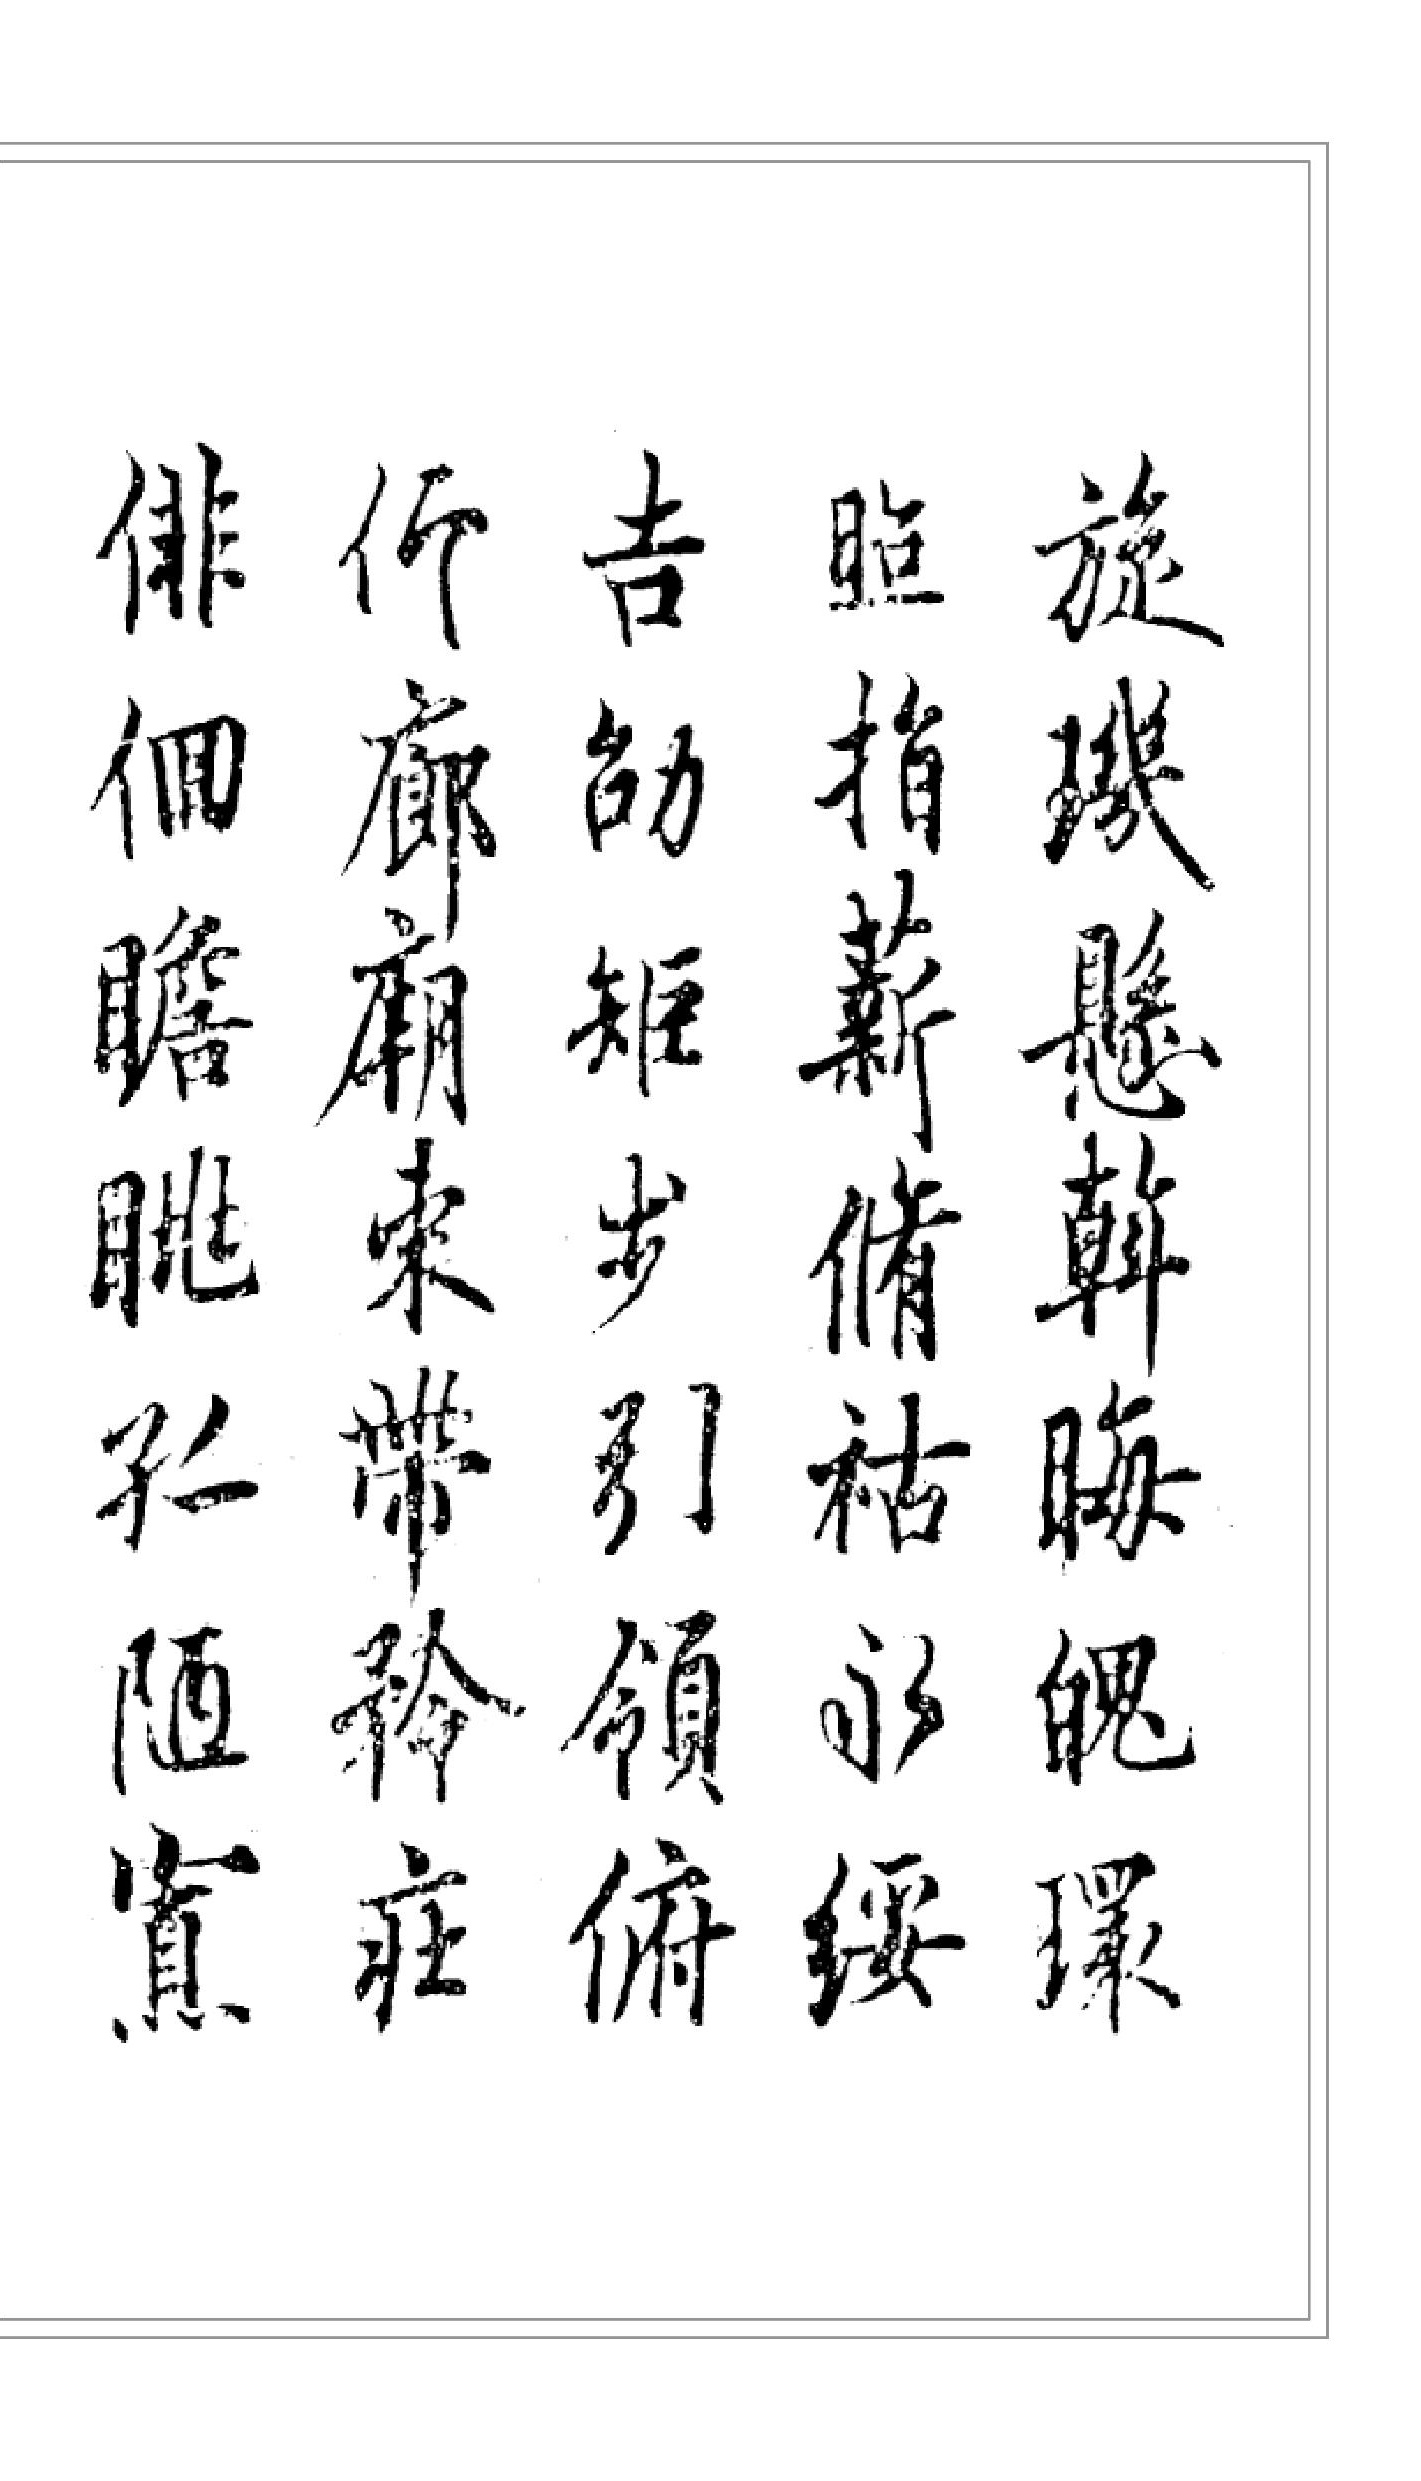 旋璣懸斡晦魄環
照指薪脩祜永綏
吉劭矩步引領俯
仰廊廟束帶矜莊
徘徊瞻眺孤陋寡